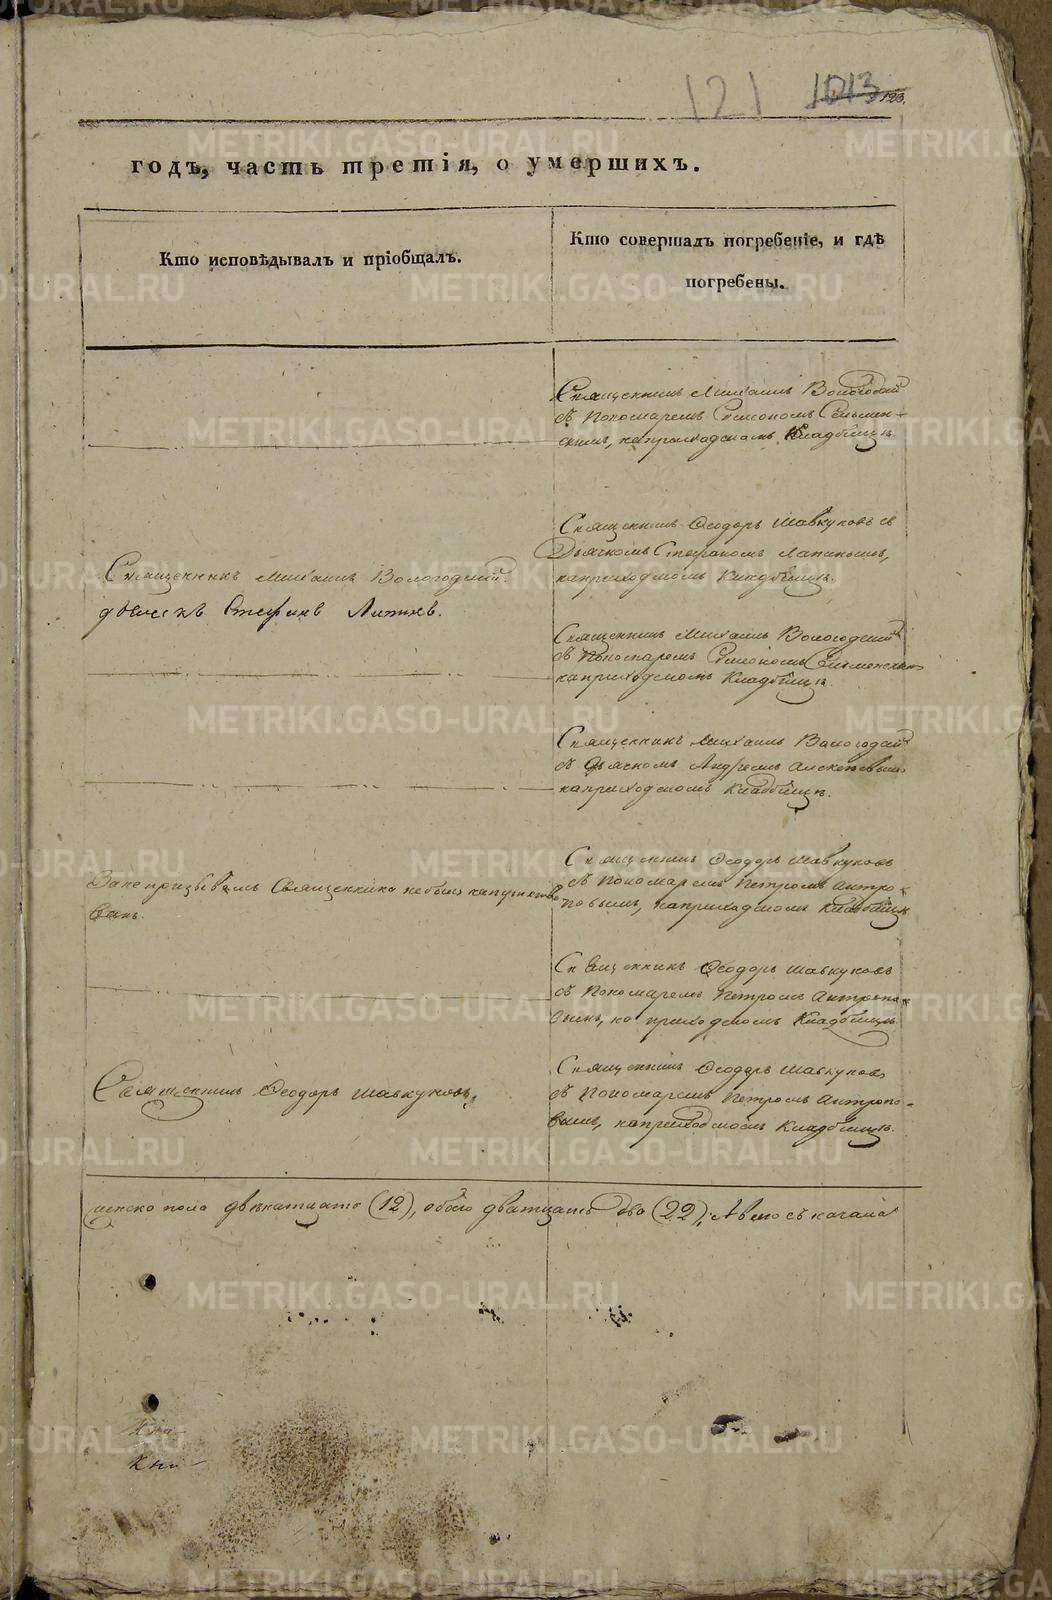 121 1013 123.
годъ, часть третія, о умершихъ.
Кто исповѣдывалъ и пріобщалъ.
Кто совершалъ погребеніе, и гдѣ
погребены.
Священникъ Михаилъ Вологодкій
съ Пономаремъ Симономъ Сельмен-
скимъ, наприходскомъ Кладбищѣ.
Священникъ Ѳеодоръ Шавкуновъ съ
Дьячкомъ Стефаномъ Лапинымъ,
наприходскомъ Кладбищѣ.
Священникъ Михаилъ Вологодкій.
дьячекъ Стефанъ
Священникъ Михаилъ Вологодкій
съ Пономаремъ Симономъ Сельменскимъ
наприходскомъ Кладбищѣ.
Священникъ Михаилъ Вологодкій
съ Дьячкомъ Андреемъ
наприходскомъ Кладбищѣ.
Занепризывомъ Священника небылъ напутство
ванъ.
Священникъ Ѳеодоръ Шавкуновъ
съ Пономаремъ Петромъ Антро-
повымъ, наприходскомъ Кладбищѣ
Священникъ Ѳеодоръ Шавкуновъ
съ Пономаремъ Петромъ Антропо-
вымъ, на приходскомъ Кладбищѣ.
Священникъ Ѳеодоръ Шавкуновъ.
Священникъ Ѳеодоръ Шавкуновъ
съ Пономаремъ Петромъ Антропо-
вымъ, наприходскомъ Кладбищѣ.
женска пола двенатцать (12), обоего дватцать два (22), А всего съ начала
Кни
Кни
METRIKI.GASO-URAL.RU